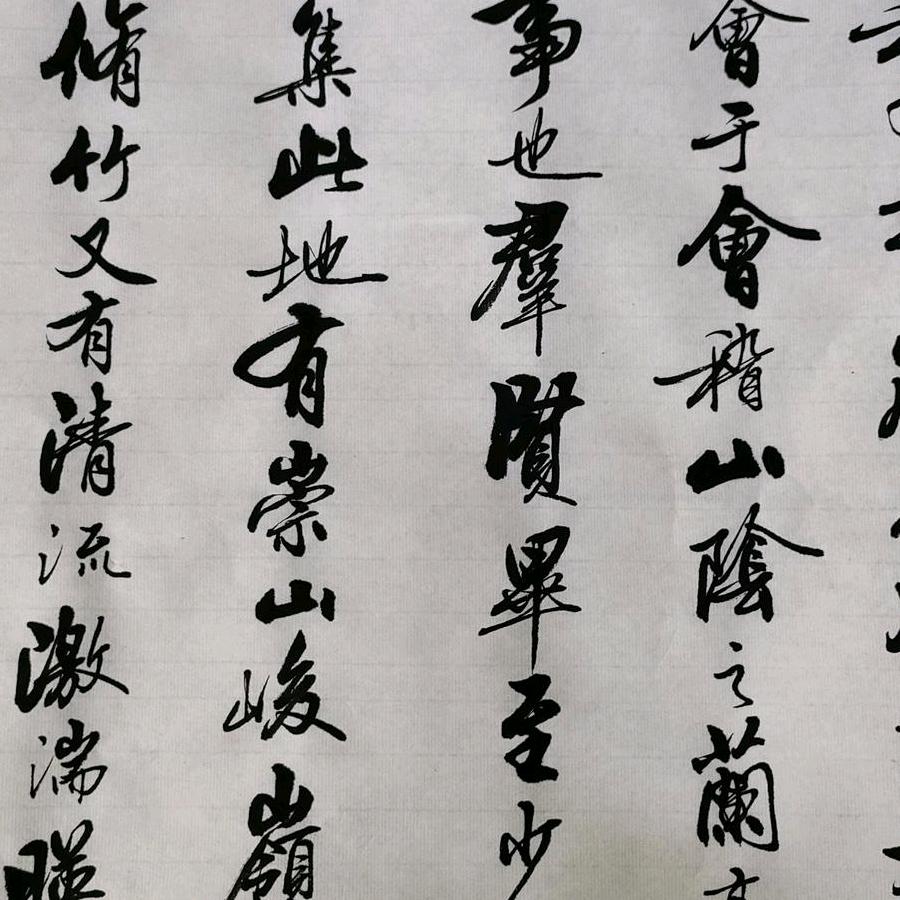 會于會稽山陰之蘭亭
事也羣賢畢至少
集此地有崇山峻嶺
脩竹又有清流激湍暎